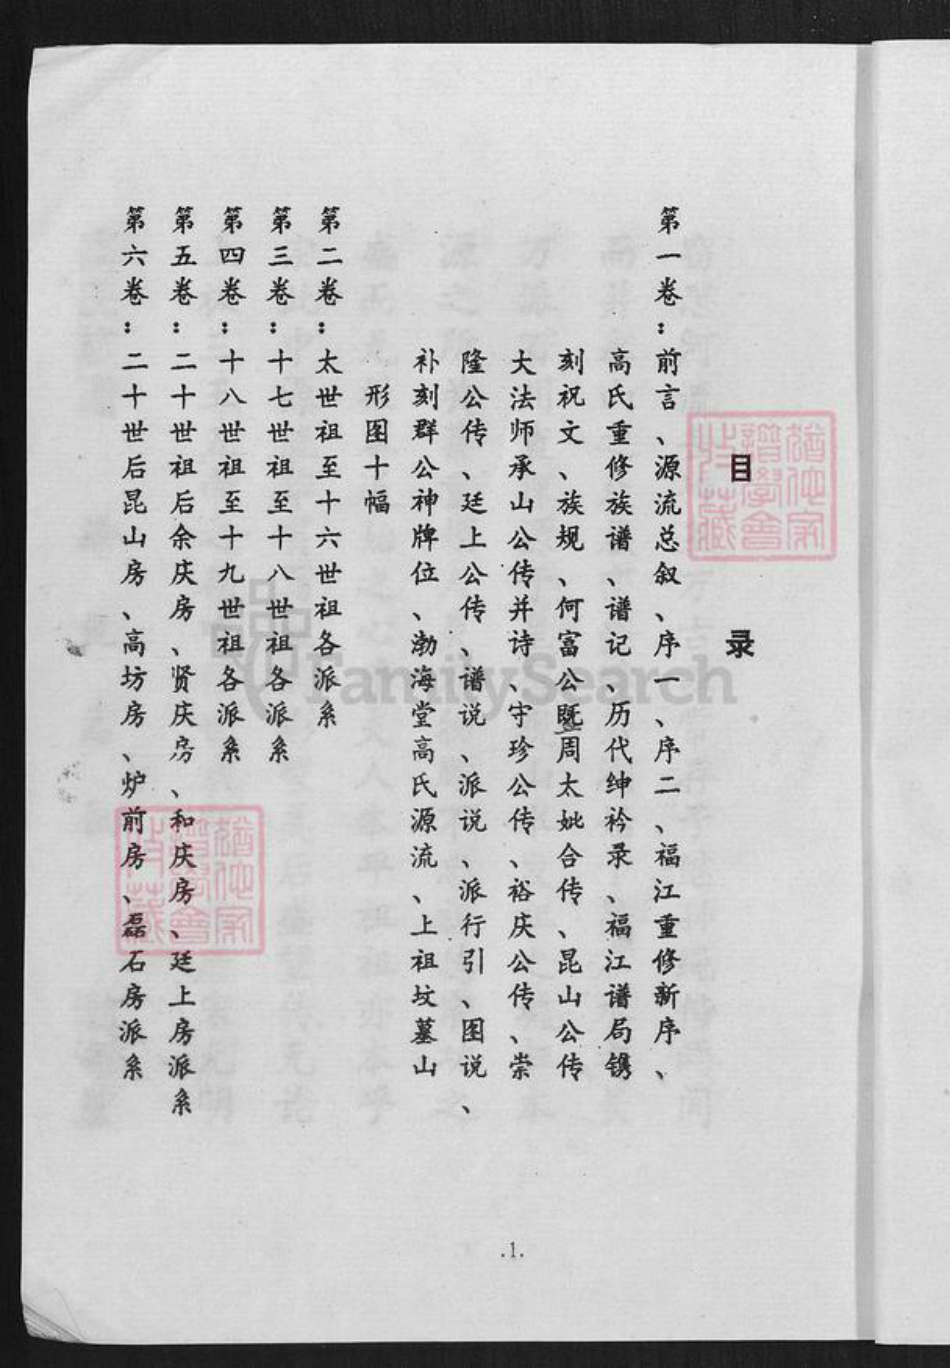 目录
第一卷：前言、源流总叙、序一、序二、福江重修新序、
高氏重修族谱、谱记、历代绅衿录、福江谱局镌
刻祝文、族规、何富公暨周太妣合传、昆山公传
大法师承山公传并诗、守珍公传、裕庆公传、崇
隆公传、廷上公传、谱说、派说、派行引、图说、
补刻群公神牌位、渤海堂高氏源流、上祖坟墓山
形图十幅
第二卷：太世祖至十六世祖各派系
第三卷：十七世祖至十八世祖各派系
第四卷：十八世祖至十九世祖各派系
第五卷：二十世祖后余庆房、贤庆房、和庆房、廷上房派系
第六卷：二十世后昆山房、高坊房、炉前房、磊石房派系
.1.
FamilySearch